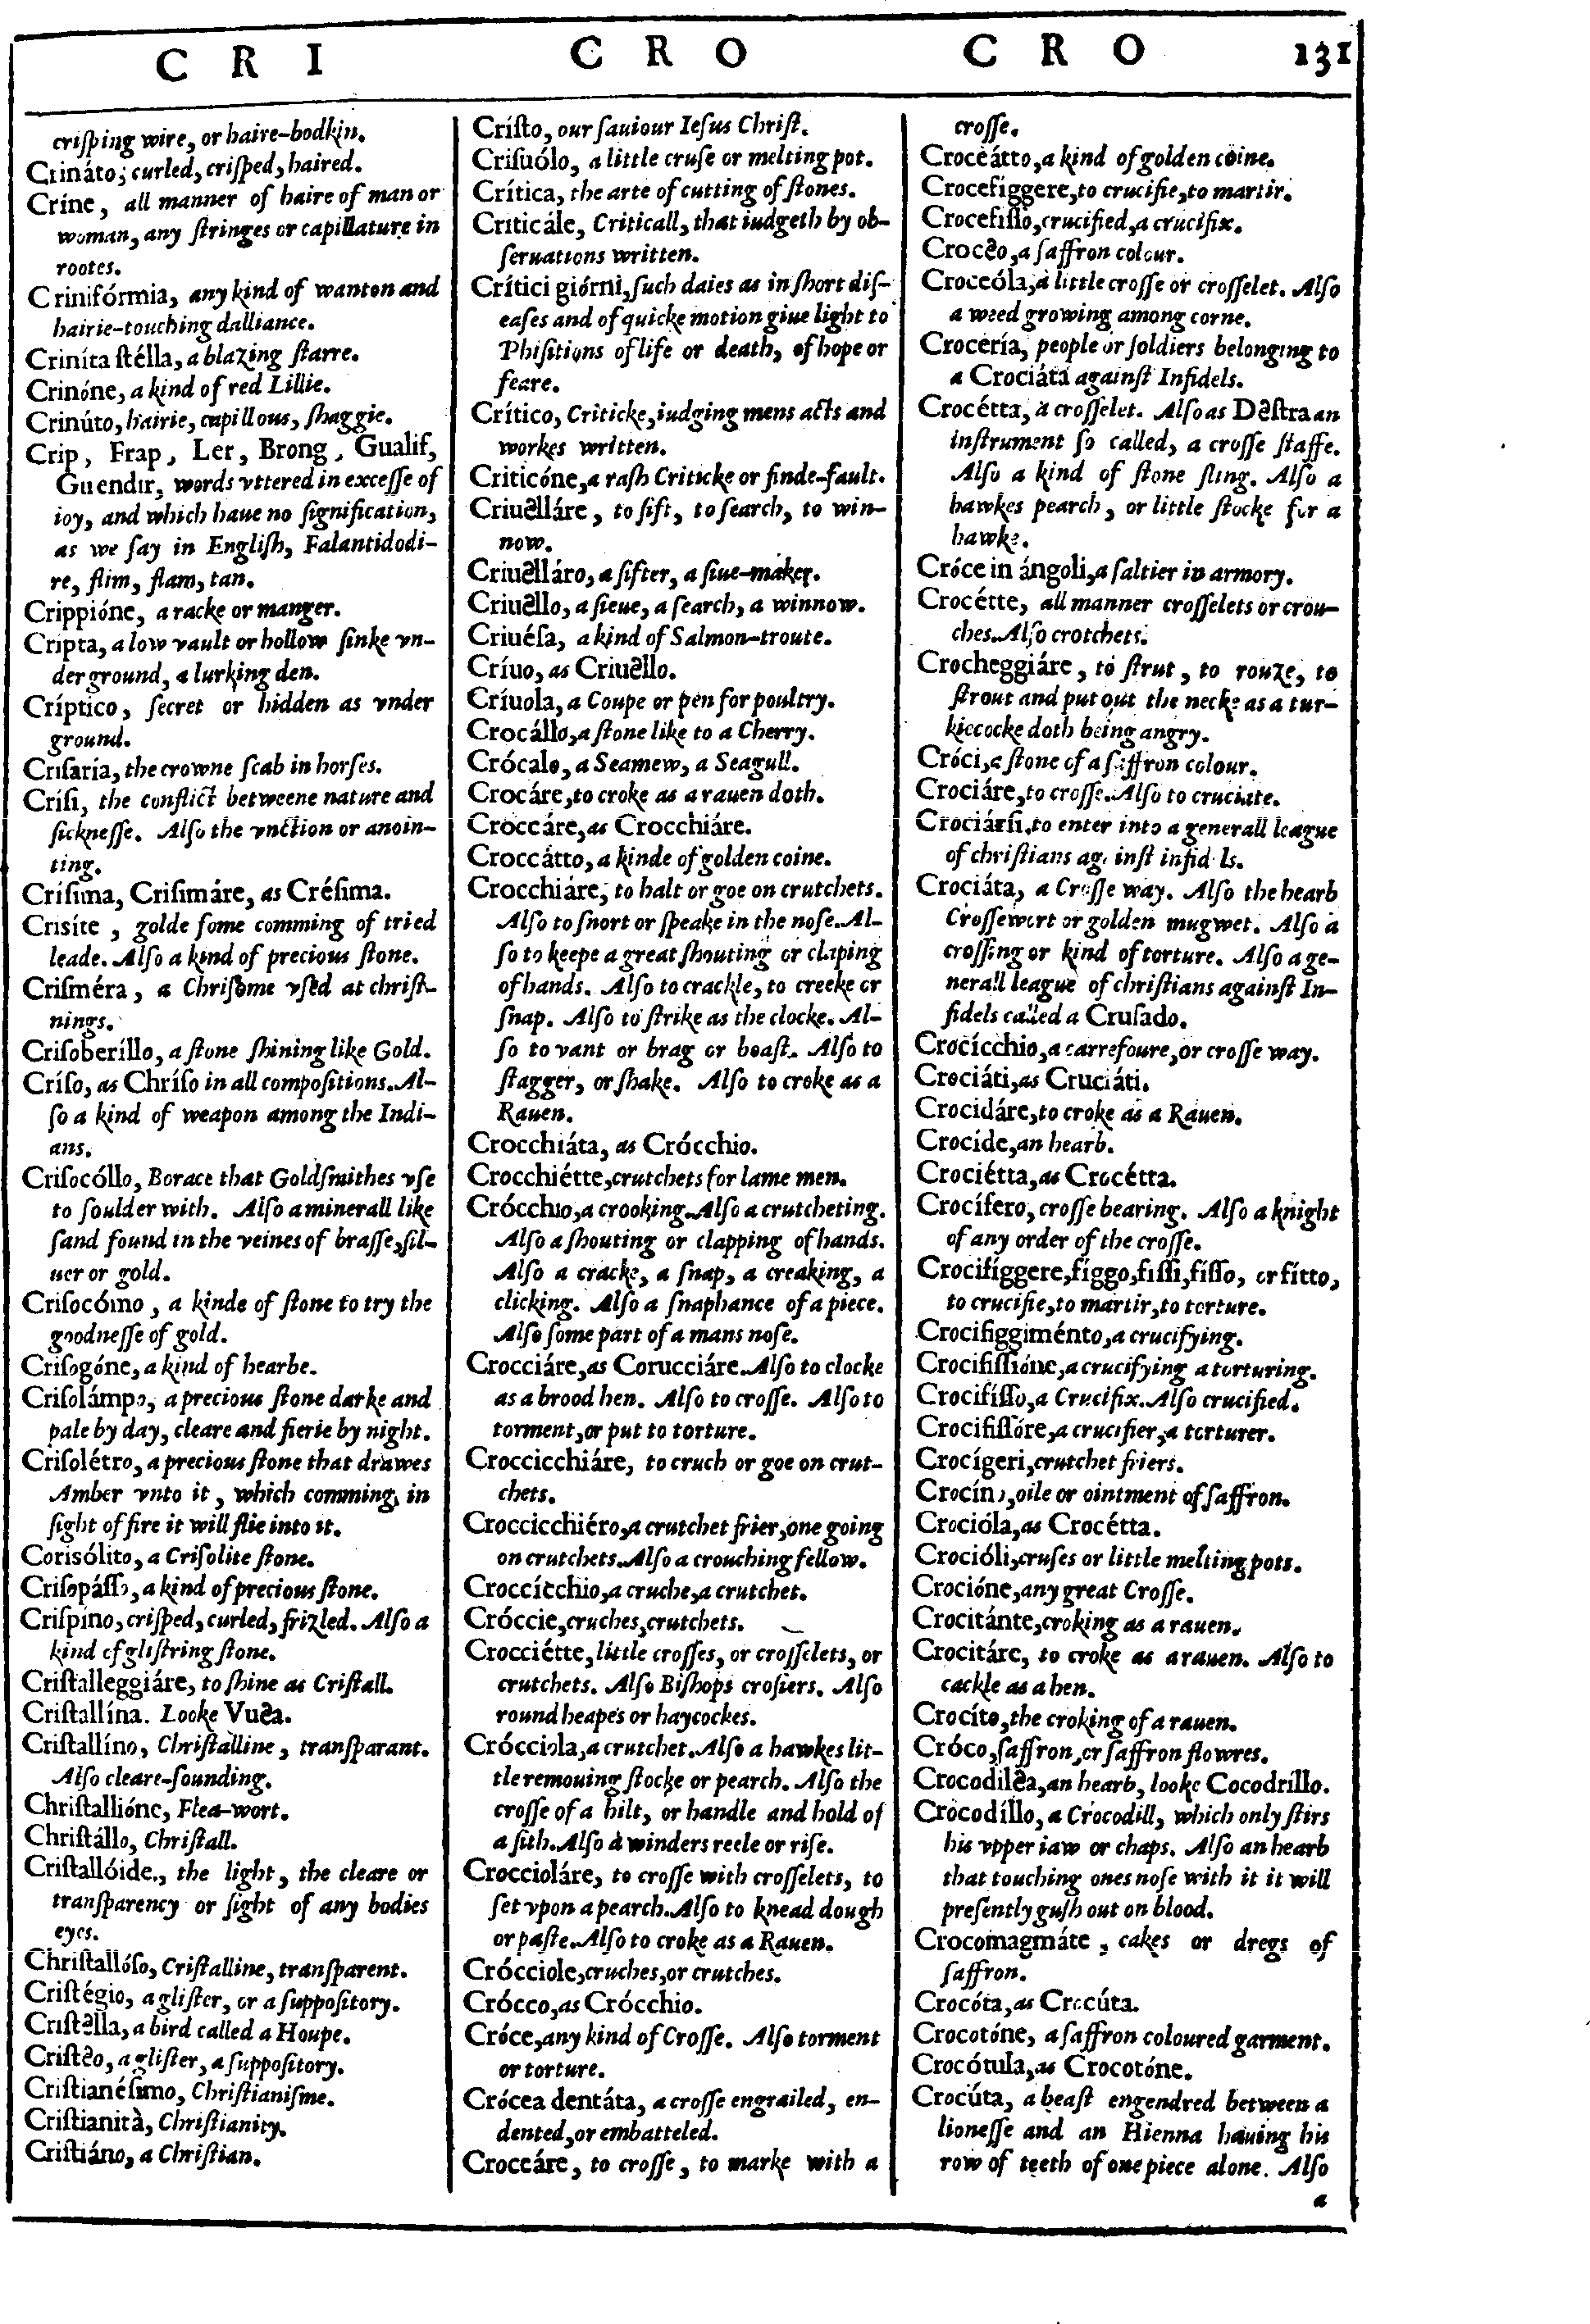 C R I
C R O
C R O
131
criſping wire, or haire-bodkin.
Crináto, curled, criſped, haired.
Críne, all manner of haire of man or
woman, any ſtringes or capillature in
rootes.
Crinifórmia, any kind of wanton and
hairie-touching dalliance.
Criníta ſtélla, a blazing ſtarre.
Crinóne, a kind of red Lillie.
Crinúto, hairie, capillous, ſhaggie.
Crip, Frap, Ler, Brong, Gualif,
Guendir, words vttered in exceſſe of
ioy, and which haue no ſignification,
as we ſay in Engliſh, Falantidodi-
re, flim, flam, tan.
Crippióne, a racke or manger.
Cripta, a low vault or hollow ſinke vn-
derground, a lurking den.
Críptico, ſecret or hidden as vnder
ground.
Criſaría, the crowne ſcab in horſes.
Críſi, the conflict betweene nature and
ſickneſſe. Alſo the vnction or anoin-
ting.
Críſima, Criſimáre, as Créſima.
Crisíte, golde fome comming of tried
leade. Alſo a kind of precious ſtone.
Criſméra, a Chriſome vſed at chriſt-
nings.
Criſoberíllo, a ſtone ſhining like Gold.
Críſo, as Chríſo in all compoſitions. Al-
ſo a kind of weapon among the Indi-
ans.
Criſocóllo, Borace that Goldſmithes vſe
to ſoulder with. Alſo a minerall like
ſand found in the veines of braſſe, ſil-
uer or gold.
Criſocómo, a kinde of ſtone to try the
goodneſſe of gold.
Criſogóne, a kind of hearbe.
Criſolámpo, a precious ſtone darke and
pale by day, cleare and fierie by night.
Criſolétro, a precious ſtone that drawes
Amber vnto it, which comming in
ſight of fire it will flie into it.
Corisólito, a Criſolite ſtone.
Criſopáſſo, a kind of precious ſtone.
Criſpíno, criſped, curled, frizled. Alſo a
kind of gliſtring ſtone.
Criſtalleggiáre, to ſhine as Criſtall.
Criſtallína. Looke Vuea.
Criſtallíno, Chriſtalline, tranſparant.
Alſo cleare-ſounding.
Chriſtallióne, Flea-wort.
Chriſtállo, Chriſtall.
Criſtallóide., the light, the cleare or
tranſparency or ſight of any bodies
eyes.
Chriſtallóſo, Criſtalline, tranſparent.
Criſtégio, a gliſter, or a ſuppoſitory.
Criſtella, a bird called a Houpe.
Criſteo, a gliſter, a ſuppoſitory.
Criſtianéſimo, Chriſtianiſme.
Criſtianità, Chriſtianity.
Criſtiáno, a Chriſtian.
Críſto, our ſauiour Ieſus Chriſt.
Criſuólo, a little cruſe or melting pot.
Crítica, the arte of cutting of ſtones.
Criticále, Criticall, that iudgeth by ob-
ſeruations written.
Crítici giórni, ſuch daies as in ſhort diſ-
eaſes and of quicke motion giue light to
Phiſitions of life or death, of hope or
feare.
Crítico, Criticke, iudging mens acts and
workes written.
Criticóne, a raſh Criticke or finde-fault.
Criuelláre, to ſift, to ſearch, to win-
now.
Criuelláro, a ſifter, a ſiue-maker.
Criuello, a ſieue, a ſearch, a winnow.
Criuéſa, a kind of Salmon-troute.
Críuo, as Criuello.
Críuola, a Coupe or pen for poultry.
Crocállo, a ſtone like to a Cherry.
Crócalo, a Seamew, a Seagull.
Crocáre, to croke as a rauen doth.
Croccáre, as Crocchiáre.
Croccátto, a kinde of golden coine.
Crocchiáre, to halt or goe on crutchets.
Alſo to ſnort or ſpeake in the noſe. Al-
ſo to keepe a great ſhouting or claping
of hands. Alſo to crackle, to creeke or
ſnap. Alſo to ſtrike as the clocke. Al-
ſo to vant or brag or boaſt. Alſo to
ſtagger, or ſhake. Alſo to croke as a
Rauen.
Crocchiáta, as Crócchio.
Crocchiétte, crutchets for lame men.
Crócchio, a crooking. Alſo a crutcheting.
Alſo a ſhouting or clapping of hands.
Alſo a cracke, a ſnap, a creaking, a
clicking. Alſo a ſnaphance of a piece.
Alſo ſome part of a mans noſe.
Crocciáre, as Corucciáre. Alſo to clocke
as a brood hen. Alſo to croſſe. Alſo to
torment, or put to torture.
Croccicchiáre, to cruch or goe on crut-
chets.
Croccicchiéro, a crutchet frier, one going
on crutchets. Alſo a crouching fellow.
Croccícchio, a cruche, a crutchet.
Cróccie, cruches, crutchets.
Crocciétte, little croſſes, or croſſelets, or
crutchets. Alſo Biſhops croſiers. Alſo
round heapes or haycockes.
Crócciola, a crutchet. Alſo a hawkes lit-
tle remouing ſtocke or pearch. Alſo the
croſſe of a hilt, or handle and hold of
a ſith. Alſo a winders reele or riſe.
Croccioláre, to croſſe with croſſelets, to
ſet vpon a pearch. Alſo to knead dough
or paſte. Alſo to croke as a Rauen.
Crócciole, cruches, or crutches.
Crócco, as Crócchio.
Cróce, any kind of Croſſe. Alſo torment
or torture.
Crócea dentáta, a croſſe engrailed, en-
dented, or embatteled.
Croceáre, to croſſe, to marke with a
croſſe.
Croceátto, a kind of golden coine.
Crocefíggere, to crucifie, to martir.
Crocefiſſo, crucified, a crucifix.
Croceo, a ſaffron colour.
Croceóla, a little croſſe or croſſelet. Alſo
a weed growing among corne.
Crocería, people or ſoldiers belonging to
a Crociáta againſt Infidels.
Crocétta, a croſſelet. Alſo as Deſtra an
inſtrument ſo called, a croſſe ſtaffe.
Alſo a kind of ſtone ſling. Alſo a
hawkes pearch, or little ſtocke for a
hawke.
Cróce in ángoli, a ſaltier in armory.
Crocétte, all manner croſſelets or crou-
ches. Alſo crotchets.
Crocheggiáre, to ſtrut, to rouze, to
ſtrout and put out the necke as a tur-
kiecocke doth being angry.
Cróci, a ſtone of a ſaffron colour.
Crociáre, to croſſe. Alſo to cruciate.
Crociárſi, to enter into a generall league
of chriſtians againſt infidels.
Crociáta, a Croſſe way. Alſo the hearb
Croſſewort or golden mugwet. Alſo a
croſſing or kind of torture. Alſo a ge-
nerall league of chriſtians againſt In-
fidels called a Cruſado.
Crocícchio, a carrefoure, or croſſe way.
Crociáti, as Cruciáti.
Crocidáre, to croke as a Rauen.
Crocíde, an hearb.
Crociétta, as Crocétta.
Crocífero, croſſe bearing. Alſo a knight
of any order of the croſſe.
Crocifíggere, fíggo, fiſſi, fiſſo, or fítto,
to crucifie, to martir, to torture.
Crocifiggiménto, a crucifying.
Crocifiſſióne, a crucifying a torturing.
Crocifíſſo, a Crucifix. Alſo crucified.
Crocifiſſóre, a crucifier, a torturer.
Crocígeri, crutchet friers.
Crocíno, oile or ointment of ſaffron.
Crocióla, as Crocétta.
Crocióli, cruſes or little melting pots.
Crocióne, any great Croſſe.
Crocitánte, croking as a rauen.
Crocitáre, to croke as a rauen. Alſo to
cackle as a hen.
Crocíto, the croking of a rauen.
Cróco, ſaffron, or ſaffron flowres.
Crocodilea, an hearb, looke Cocodríllo.
Crocodíllo, a Crocodill, which only ſtirs
his vpper iaw or chaps. Alſo an hearb
that touching ones noſe with it it will
preſently guſh out on blood.
Crocomagmáte, cakes or dregs of
ſaffron.
Crocóta, as Crocúta.
Crocotóne, a ſaffron coloured garment.
Crocótula, as Crocotóne.
Crocúta, a beaſt engendred between a
lioneſſe and an Hienna hauing his
row of teeth of one piece alone. Alſo
a